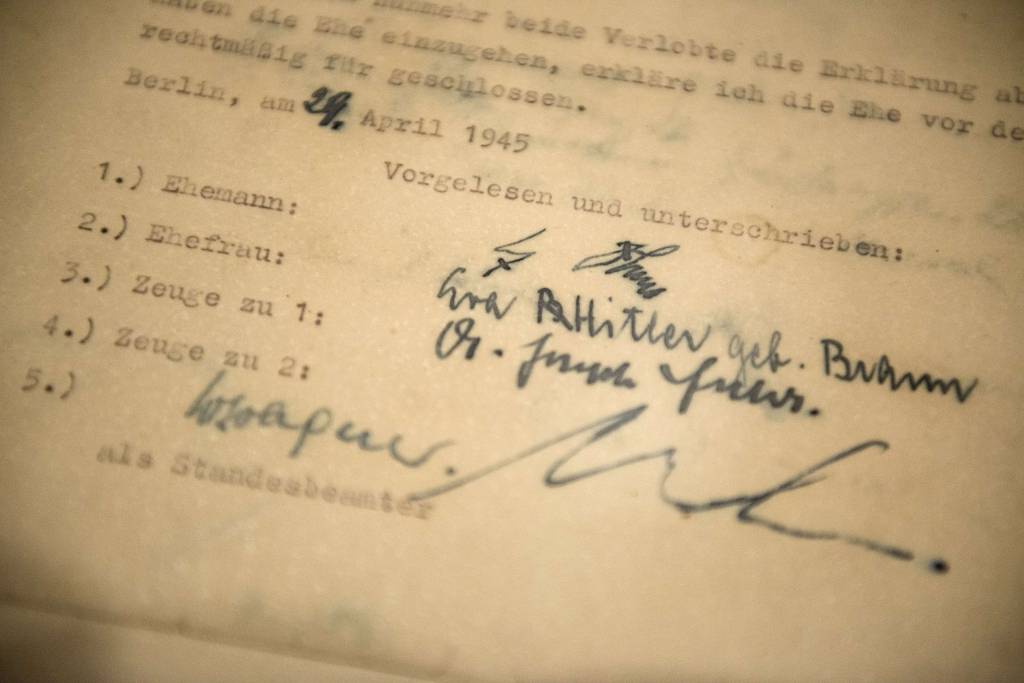 nunmehr beide Verlobte die Erklärung ab
haben die Ehe einzugehen, erkläre ich die Ehe vor de
rechtmäßig für geschlossen.
Berlin, am 29. April 1945
Vorgelesen und unterschrieben:
1.) Ehemann:
2.) Ehefrau:
Eva Hitler geb. Braun
3.) Zeuge zu 1:
Dr.
4.) Zeuge zu 2:
5.)
Wagner.
als Standesbeamter